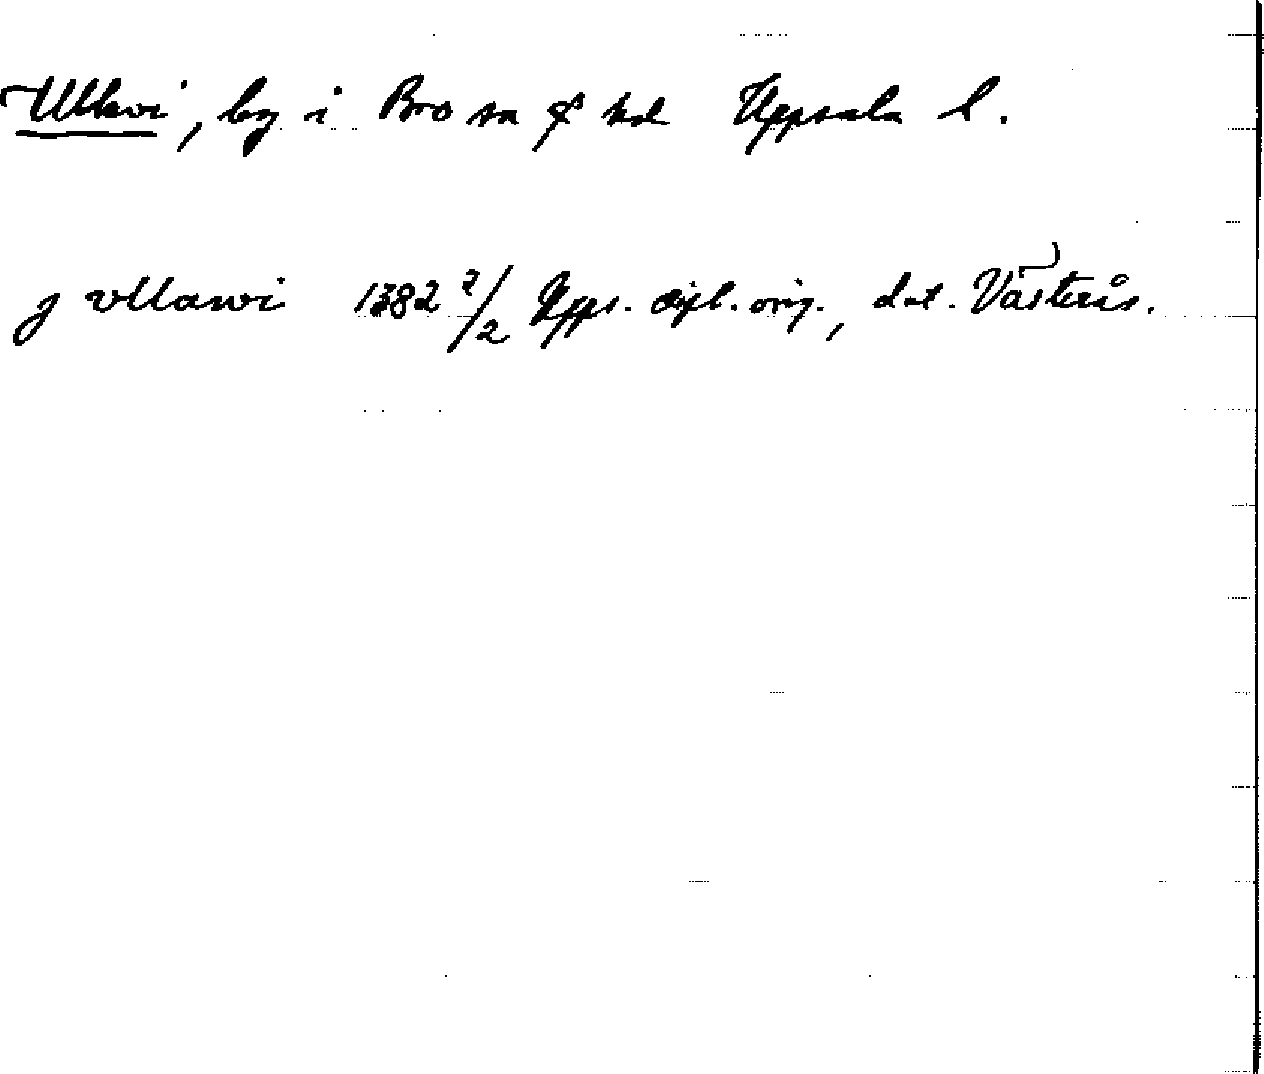 Ullevi, by i Bro sn & hd Uppsala l.
j vllawi 1382 2/2 Upps. dipl. orig., dat. Västerås.